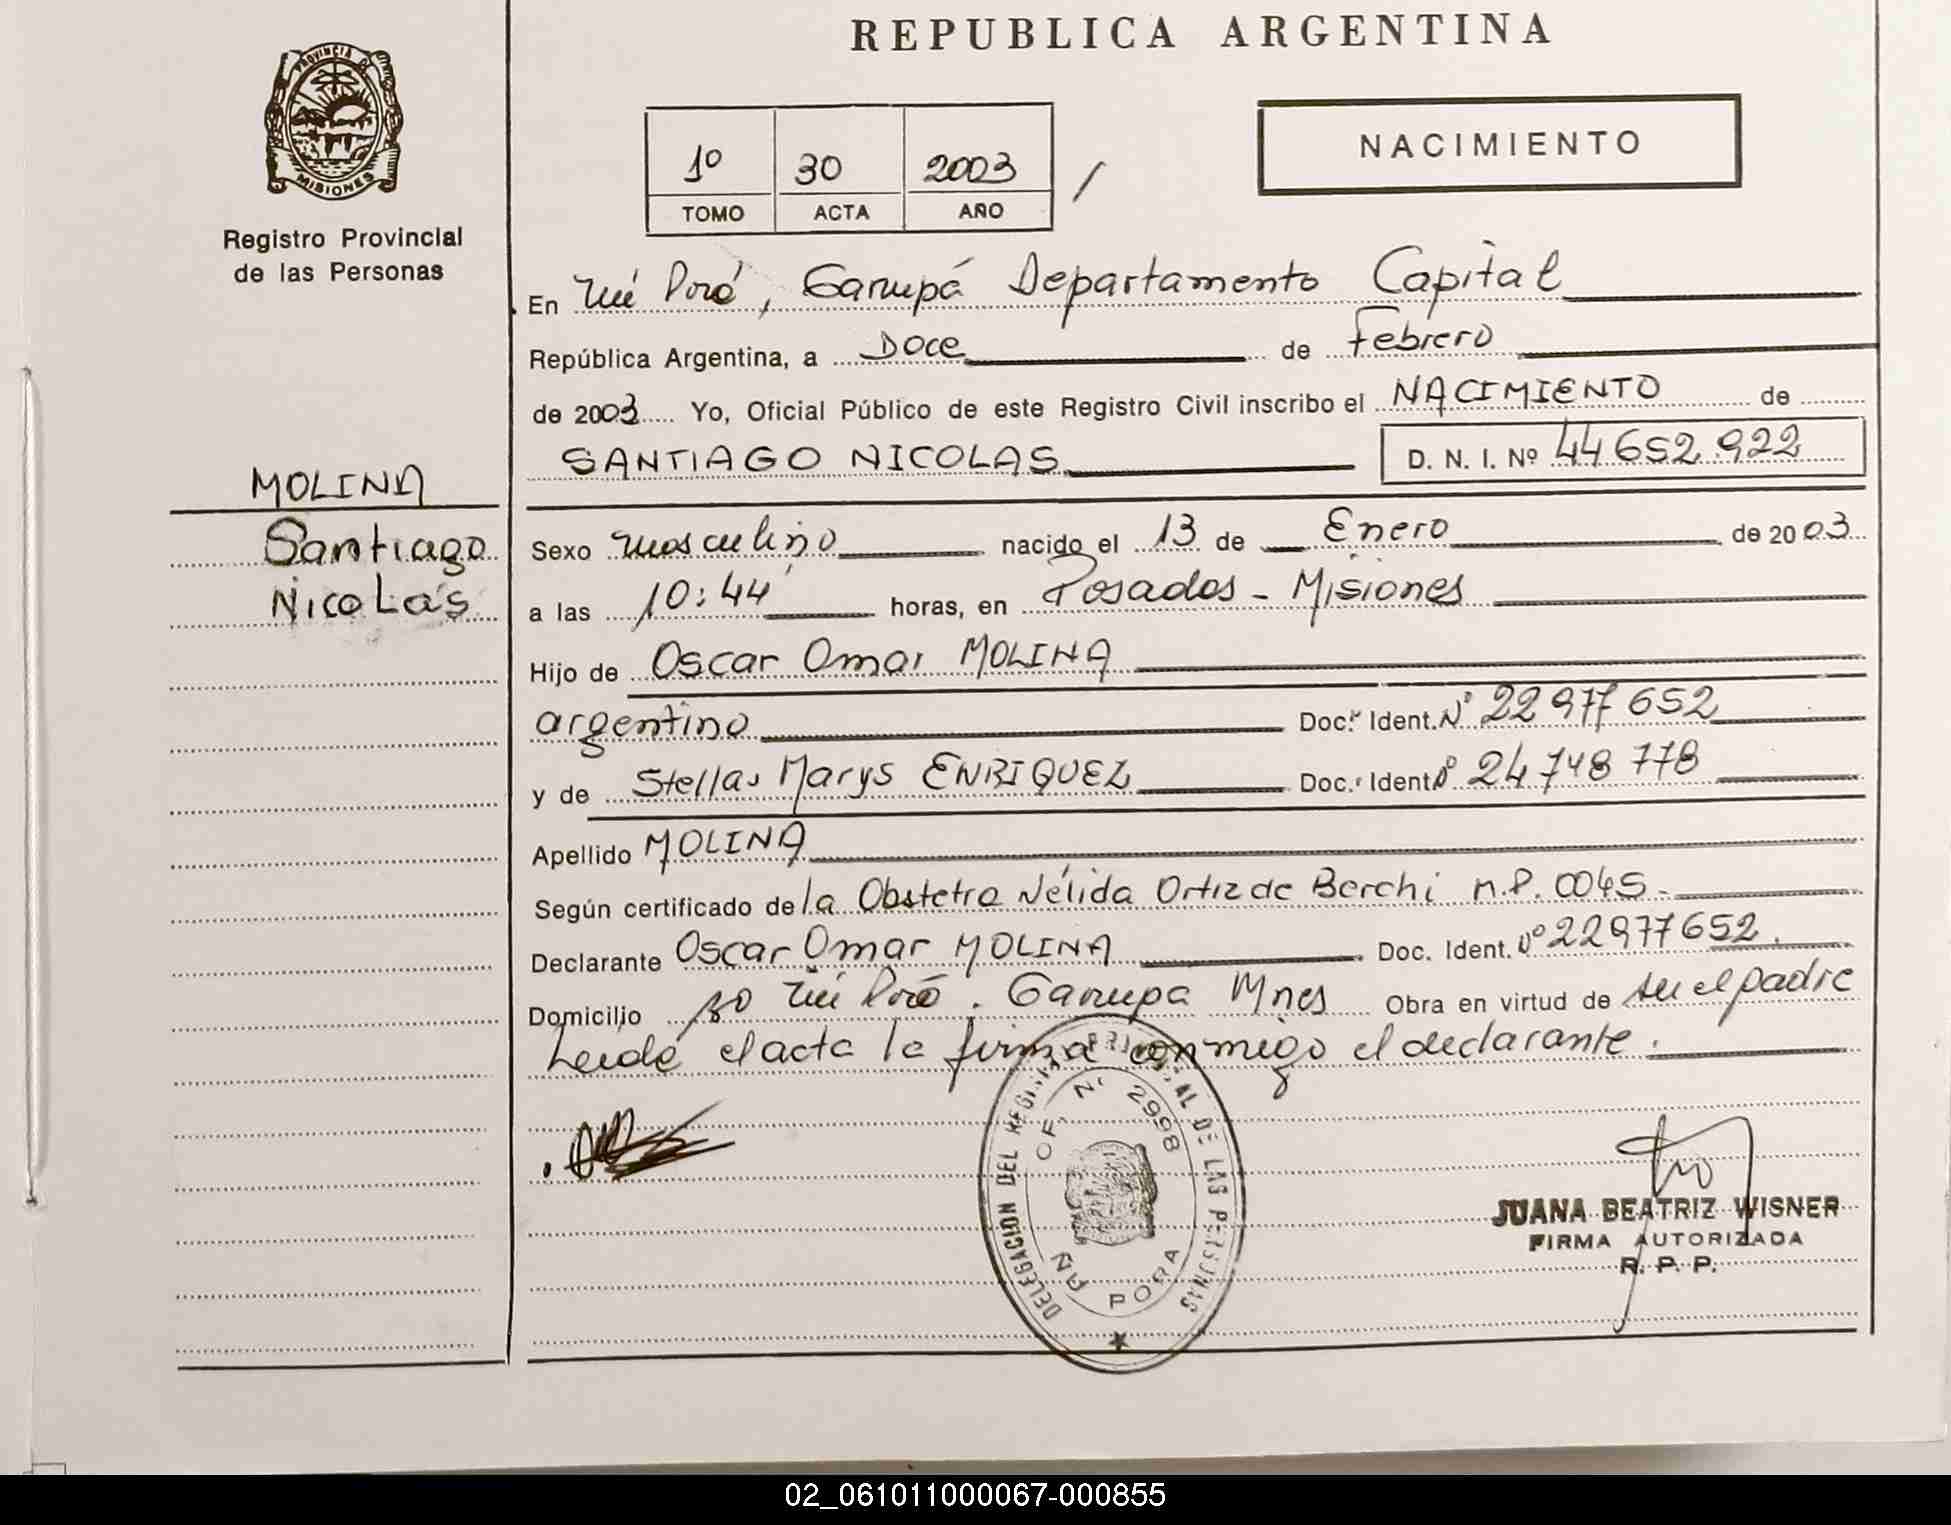 REPUBLICA ARGENTINA
PROVINCIA DE
MISIONES
Registro Provincial
de las Personas
1º 30 2003
TOMO ACTA AÑO
NACIMIENTO
En Ñú Porá, Garupá Departamento Capital
República Argentina, a Doce de Febrero
de 2003 Yo, Oficial Público de este Registro Civil inscribo el NACIMIENTO de
SANTIAGO NICOLAS D. N. I. Nº 44 652 922
MOLINA
Santiago
Nicolás
Sexo masculino nacido el 13 de Enero de 2003
a las 10:44 horas, en Posadas - Misiones
Hijo de Oscar Omar MOLINA
argentino Doc. Ident. Nº 22 977 652
y de Stella Marys ENRIQUEZ Doc. Ident. Nº 24 748 778
Apellido MOLINA
Según certificado de la Obstetra Nélida Ortiz de Berchi m.P. 0045-
Declarante Oscar Omar MOLINA Doc. Ident. Nº 22977652.
Domicilio Bº Ñú Porá. Garupa Mnes Obra en virtud de ser el padre
Leída el acta la firma conmigo el declarante.
DELEGACION DEL REGISTRO PROVINCIAL DE LAS PERSONAS
OF. Nº 2998
ÑU PORA
JUANA BEATRIZ WISNER
FIRMA AUTORIZADA
R. P. P.
02_061011000067-000855